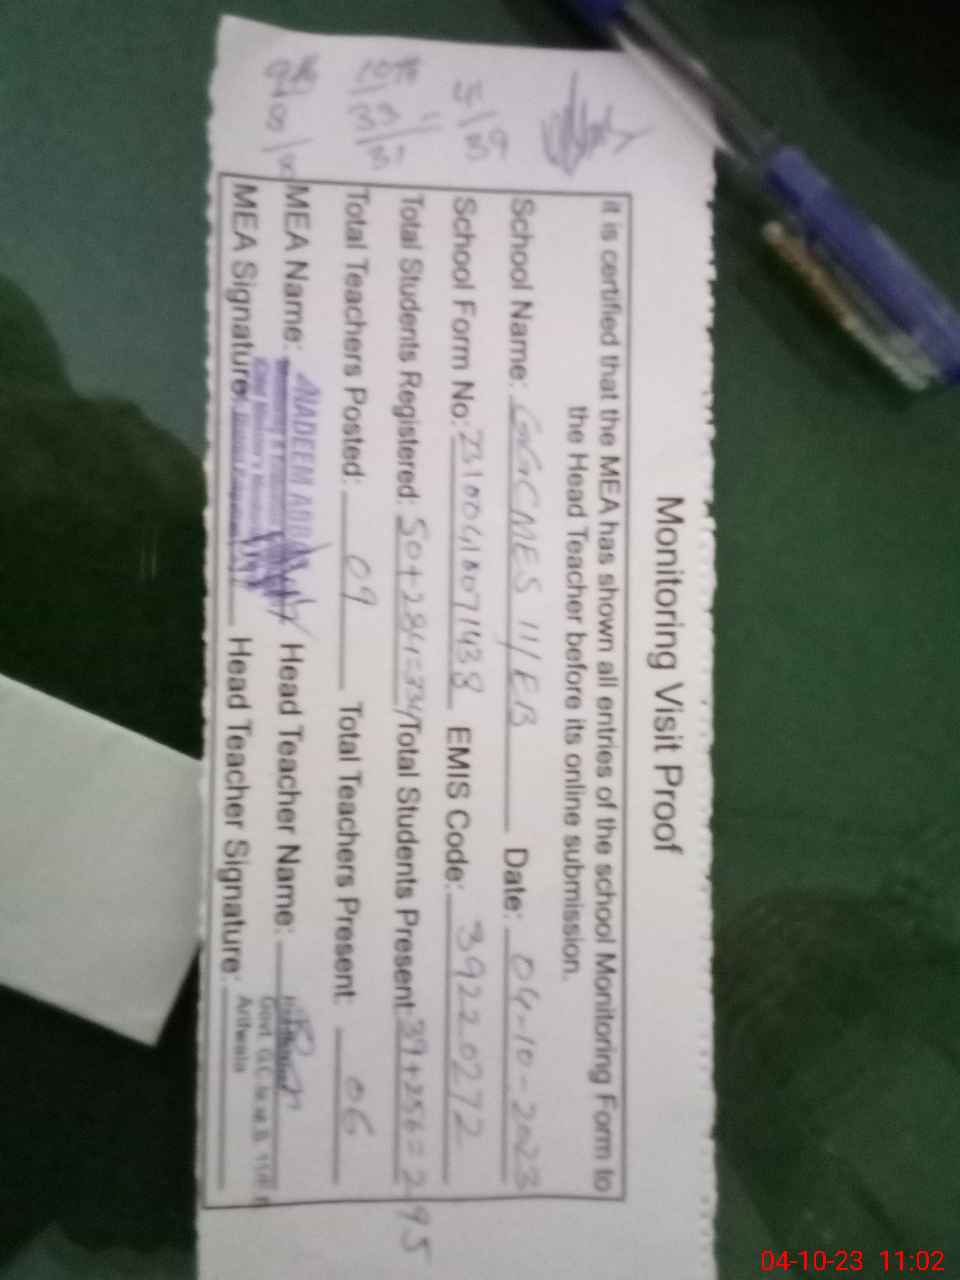 Monitoring Visit Proof
it is certified that the MEA has shown all entries of the school Monitoring Form to
the Head Teacher before its online submission.
School Name: GGCMES 11/EB Date: 04-10-2023
School Form No: EMIS Code: 39220272
Total Students Registered: 50+284=334 Total Students Present: 39+256=295
Total Teachers Posted: 09 Total Teachers Present: 06
MEA Name: NADEEM Head Teacher Name:
MEA Signature: Head Teacher Signature:
Arifwala
10th
9th
04-10-23 11:02